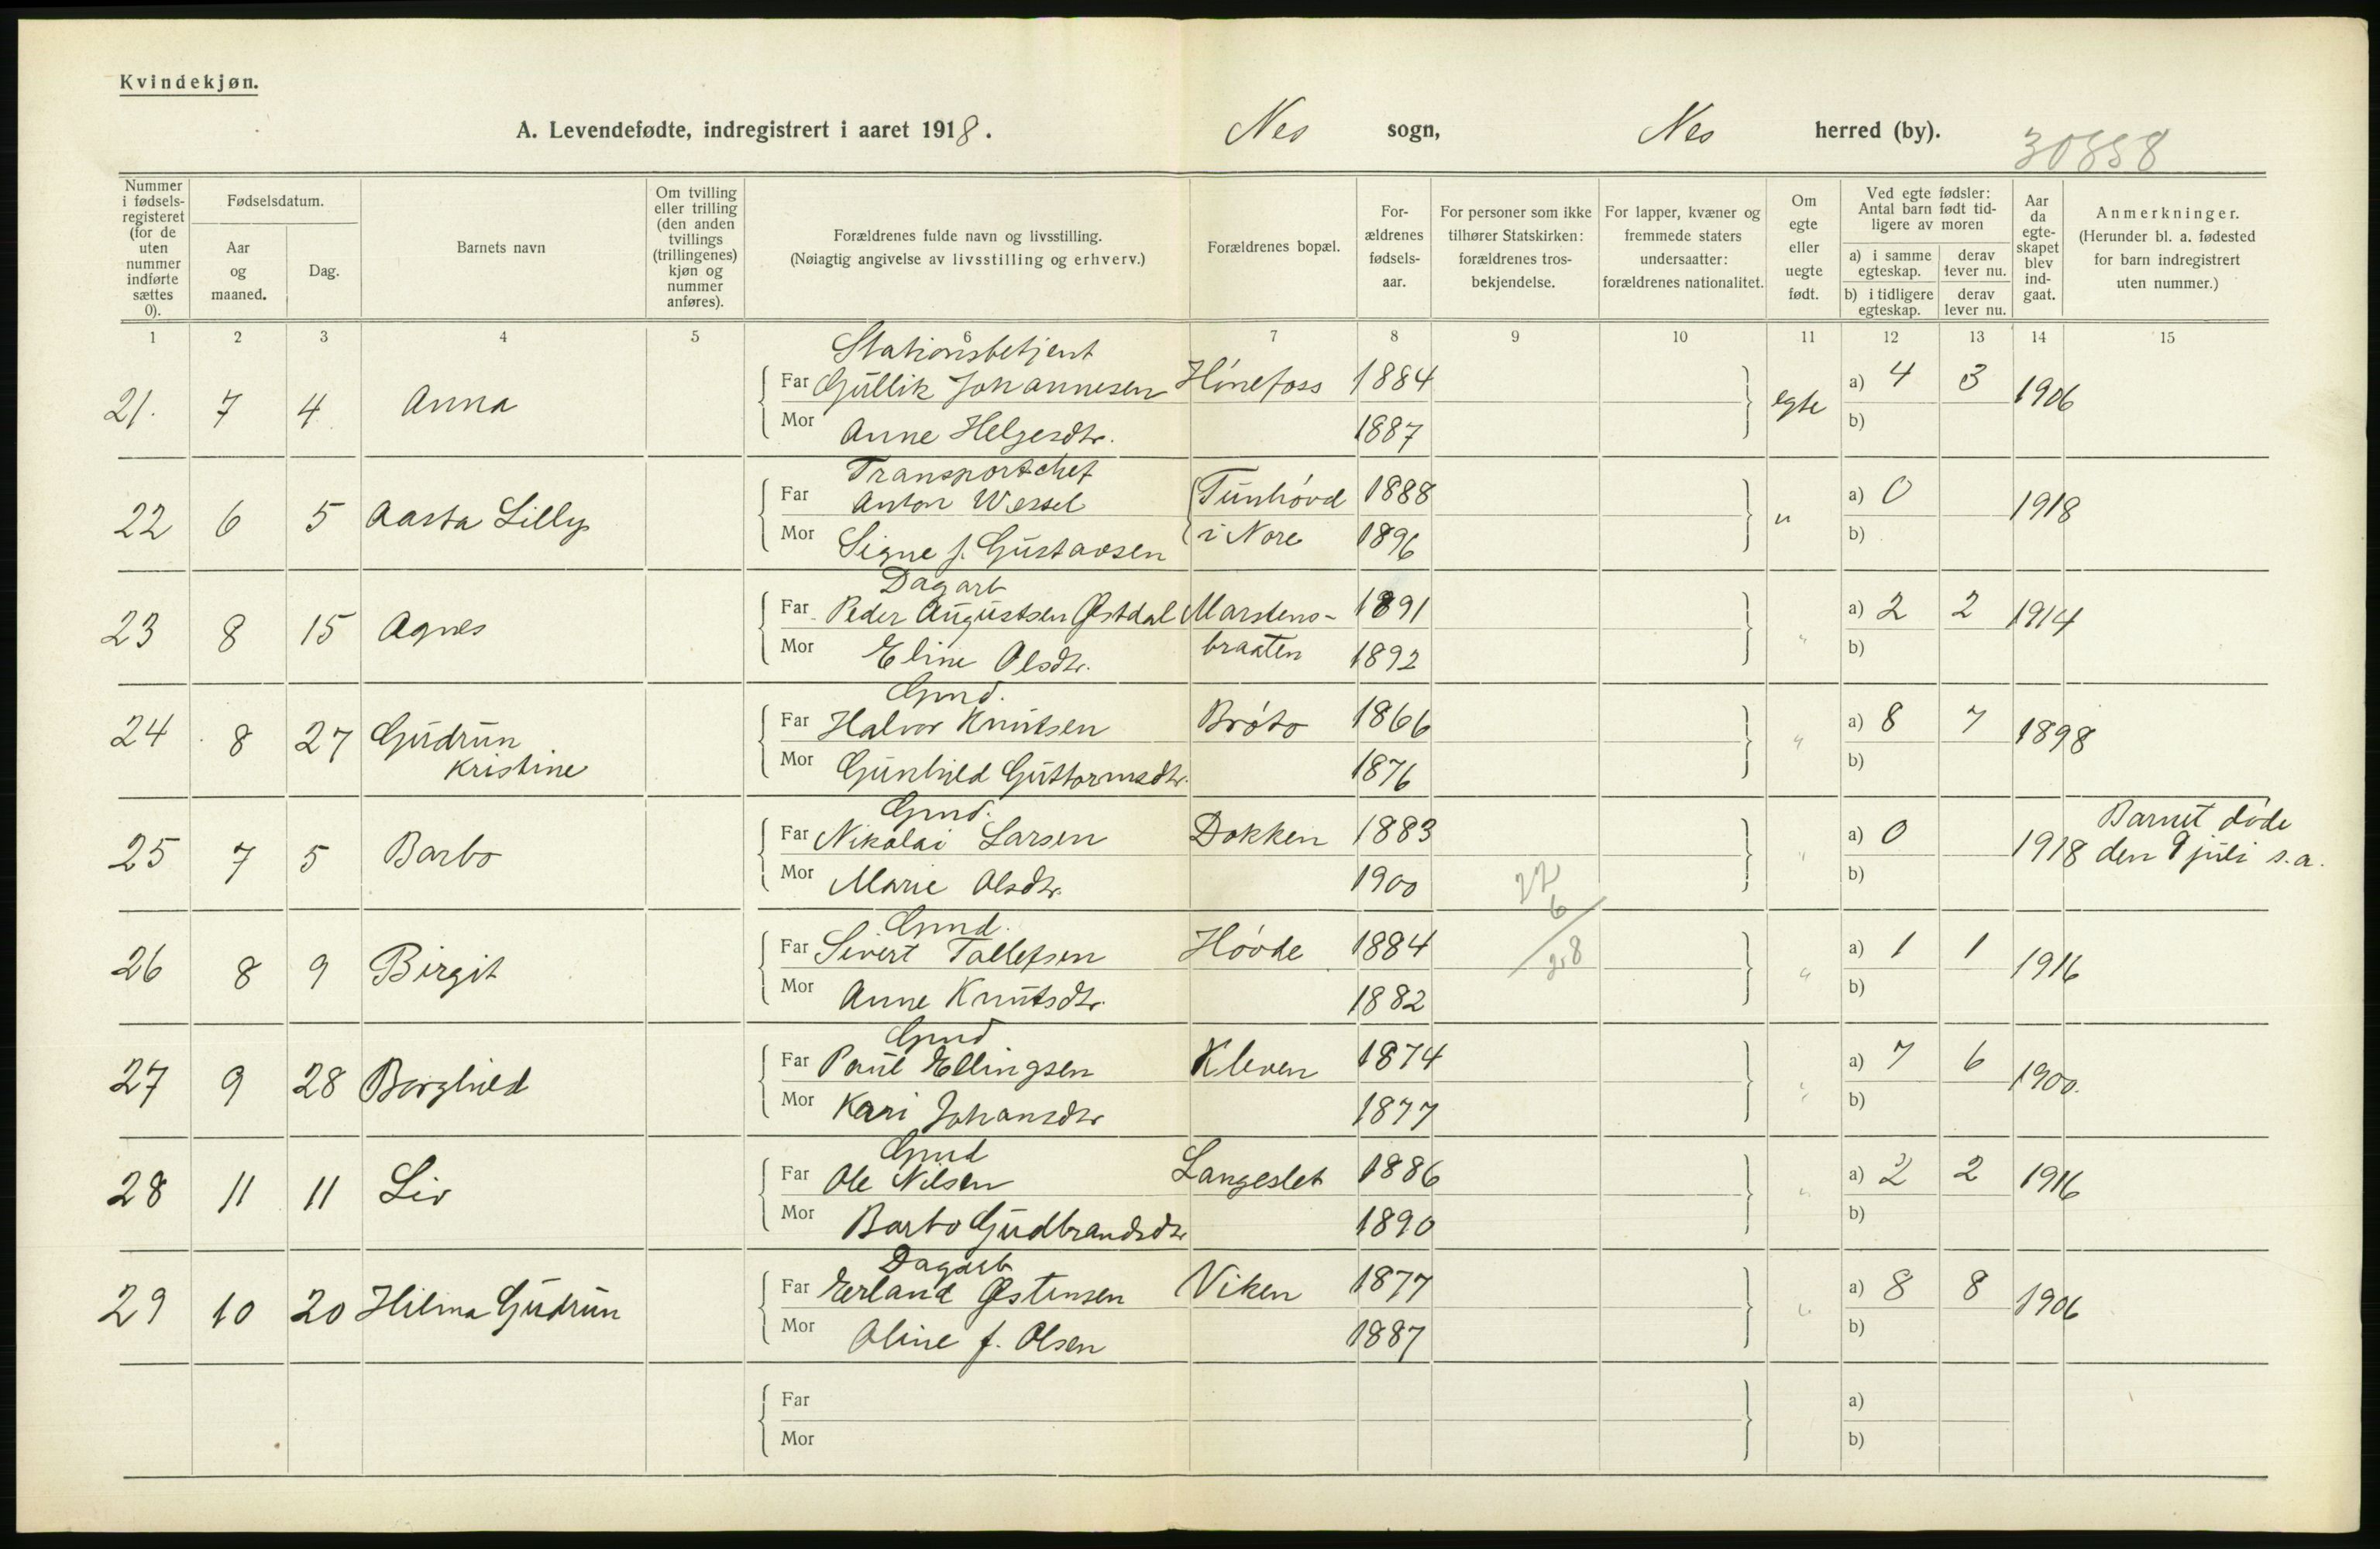 Kvindekjøn.
A. Levendefødte, indregistrert i aaret 1918. Nes sogn, Nes herred (by). 30858
Nummer i fødsels-registeret (for de uten nummer indførte sættes 0).
Fødselsdatum.
Aar og maaned.
Dag.
Barnets navn
Om tvilling eller trilling (den anden tvillings (trillingenes) kjøn og nummer anføres).
Forældrenes fulde navn og livsstilling.
(Nøiagtig angivelse av livsstilling og erhverv.)
Forældrenes bopæl.
For-ældrenes fødsels-aar.
For personer som ikke tilhører Statskirken: forældrenes tros-bekjendelse.
For lapper, kvæner og fremmede staters undersaatter: forældrenes nationalitet.
Om egte eller uegte født.
Ved egte fødsler: Antal barn født tid-ligere av moren
a) i samme egteskap.
derav lever nu.
b) i tidligere egteskap.
derav lever nu.
Aar da egte-skapet blev ind-gaat.
Anmerkninger.
(Herunder bl. a. fødested for barn indregistrert uten nummer.)
1 2 3 4 5 6 7 8 9 10 11 12 13 14 15
Stationsbetjent
21. 7 4 Anna Far Gullik Johannesen Hønefoss 1884 egte a) 4 3 1906
Mor Anne Helgesdtr. 1887 b)
Transportchef
22 6 5 Aasta Lilly Far Anton Wessel Tunhøvd 1888 " a) 0 1918
Mor Signe f. Gustavsen i Nore 1896 b)
Dagarb
23 8 15 Agnes Far Peder Augustsen Østdal Marstens- 1891 " a) 2 2 1914
Mor Eline Olsdtr. braaten 1892 b)
Grnd.
24 8 27 Gudrun Far Halvor Knutsen Brøto 1866 " a) 8 7 1898
Kristine Mor Gunhild Guttormsdtr. 1876 b)
Grnd.
25 7 5 Barbo Far Nikolai Larsen Dokken 1883 " a) 0 1918 Barnet døde
den 9 juli s.a.
Mor Marie Olsdtr. 1900 b)
Grnd.
26 8 9 Birgit Far Sivert Tollefsen Høvde 1884 " a) 1 1 1916
Mor Anne Knutsdtr. 1882 b)
Grnd
27 9 28 Borghild Far Paul Ellingsen Kleven 1874 " a) 7 6 1900.
Mor Kari Johansdtr 1877 b)
Grnd
28 11 11 Liv Far Ole Nilsen Langeslet 1886 " a) 2 2 1916
Mor Barbo Gudbrandsdtr 1890 b)
Dagarb
29 10 20 Hilma Gudrun Far Erland Østensen Viken 1877 " a) 8 8 1906
Mor Oline f. Olsen 1887 b)
Far a)
Mor b)